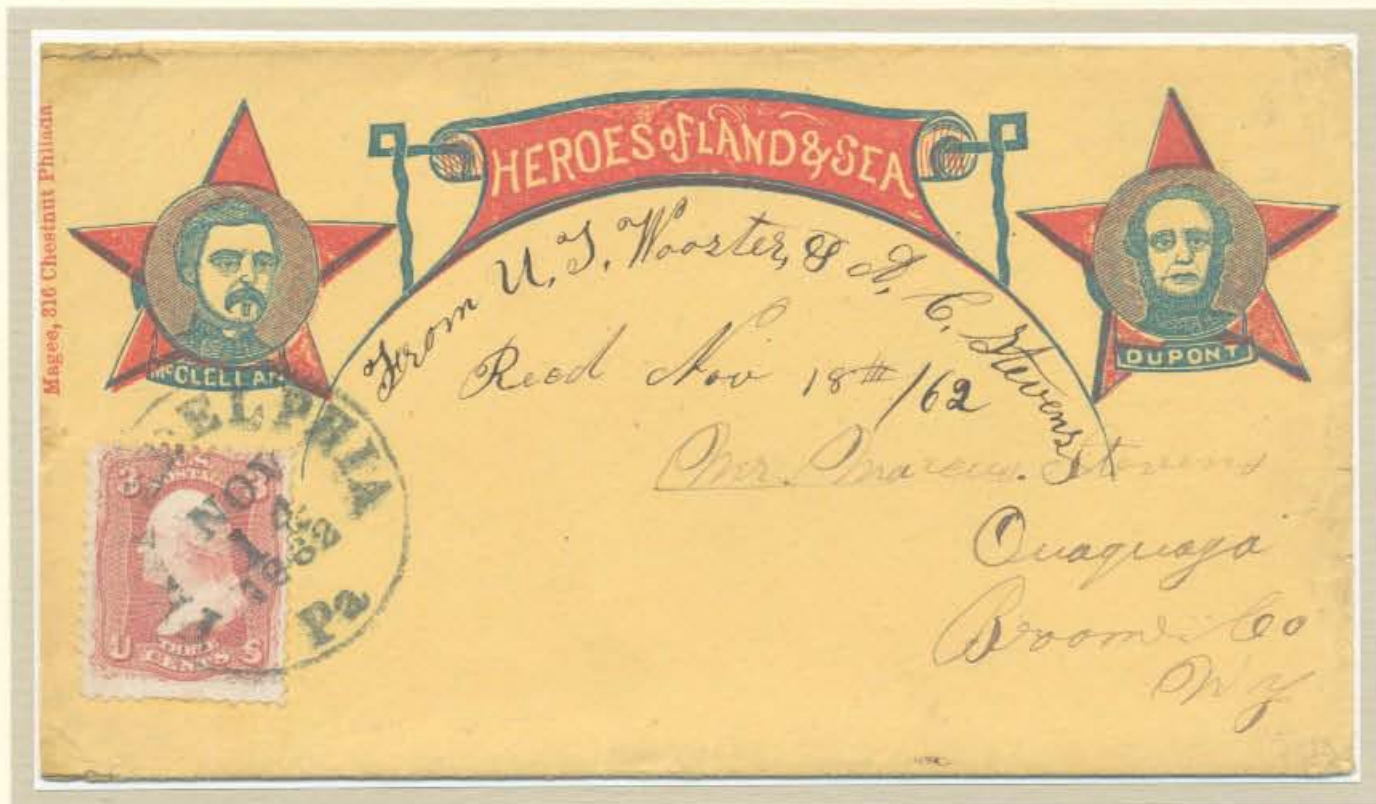 Magee, 316 Chestnut Philada
HEROES of LAND & SEA
McCLELLAN
DUPONT
From U. T. Wooster, & A. C. Stevens
Recd Nov 18th /62
Mr. Marcus Stevens
Ouaquaga
Broome Co
N Y
DELPHIA
NOV
1862
Pa
3 U.S. POSTAGE 3
U THREE CENTS S